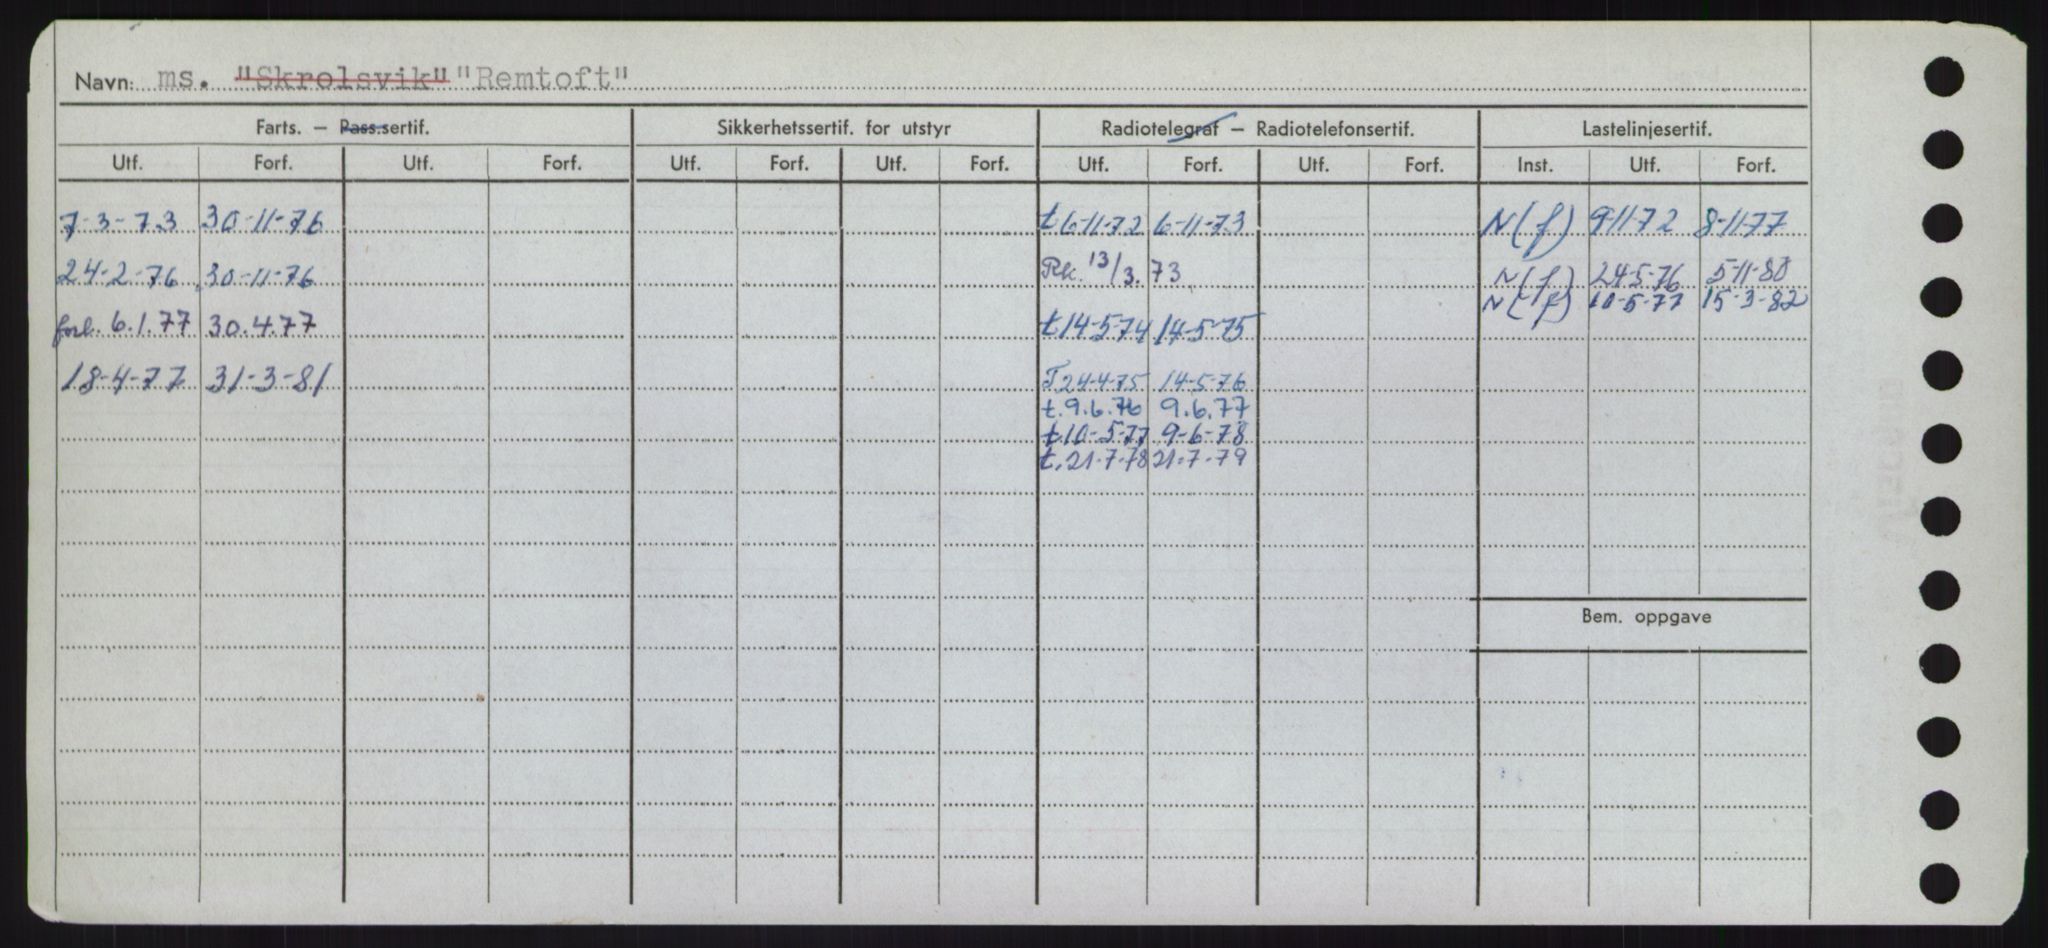 Navn: ms. "Skrolsvik" "Remtoft"
Farts. – Pass.sertif. Sikkerhetssertif. for utstyr Radiotelegraf – Radiotelefonsertif. Lastelinjesertif.
Utf. Forf. Utf. Forf. Utf. Forf. Utf. Forf. Utf. Forf. Utf. Forf. Inst. Utf. Forf.
7-3-73 30-11-76 t 6-11-72 6-11-73 N(f) 9-11-72 8-11-77
24-2-76 30-11-76 Rk. 13/3.73 N(f) 24-5-76 5-11-80
N(f) 10-5-77 15-3-82
forl. 6.1.77 30.4.77 t 14-5-74 14-5-75
18-4-77 31-3-81 T 24-4-75 14-5-76
t. 9.6.76 9.6.77
t 10-5-77 9-6-78
t. 21-7-78 21-7-79
Bem. oppgave